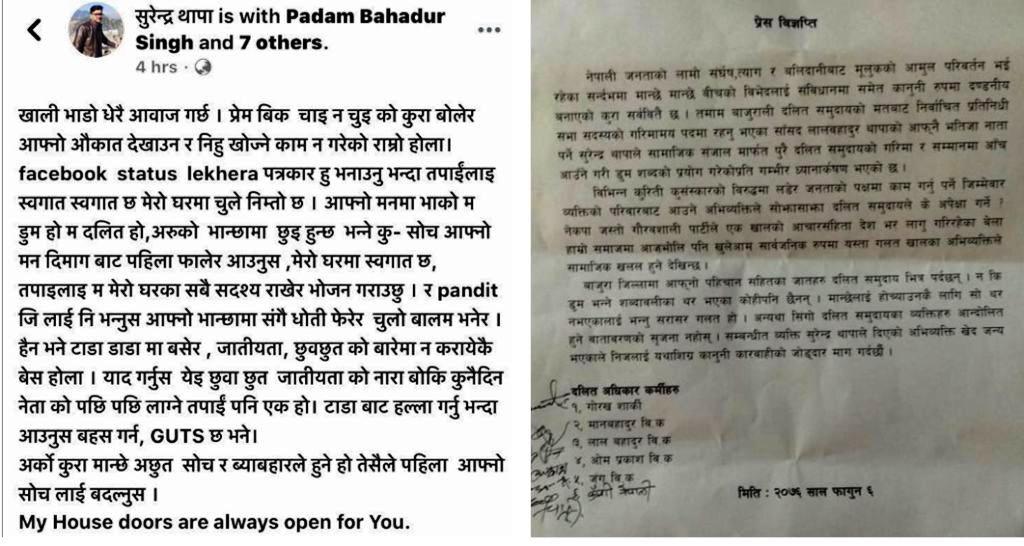 सुरेन्द्र थापा is with Padam Bahadur
Singh and 7 others.
4 hrs
खाली भाडो धेरै आवाज गर्छ । प्रेम बिक चाइ न चुइ को कुरा बोलेर
आफ्नो औकात देखाउन र निहु खोज्ने काम न गरेको राम्रो होला।
facebook status lekhera पत्रकार हु भनाउनु भन्दा तपाईंलाइ
स्वगात स्वगात छ मेरो घरमा चुले निम्तो छ । आफ्नो मनमा भाको म
डुम हो म दलित हो,अरुको भान्छामा छुइ हुन्छ भन्ने कु- सोच आफ्नो
मन दिमाग बाट पहिला फालेर आउनुस ,मेरो घरमा स्वगात छ,
तपाइलाइ म मेरो घरका सबै सदश्य राखेर भोजन गराउछु । र pandit
जि लाई नि भन्नुस आफ्नो भान्छामा संगै धोती फेरेर चुलो बालम भनेर ।
हैन भने टाडा डाडा मा बसेर , जातीयता, छुवछुत को बारेमा न करायेकै
बेस होला । याद गर्नुस येइ छुवा छुत जातीयता को नारा बोकि कुनैदिन
नेता को पछि पछि लाग्ने तपाईं पनि एक हो। टाडा बाट हल्ला गर्नु भन्दा
आउनुस बहस गर्न, GUTS छ भने।
अर्को कुरा मान्छे अछुत सोच र ब्याबहारले हुने हो तेसैले पहिला आफ्नो
सोच लाई बदल्नुस ।
My House doors are always open for You.
प्रेस विज्ञप्ति
नेपाली जनताको लामो संघर्ष,त्याग र बलिदानीबाट मूलुकको आमुल परिवर्तन भई
रहेका सर्न्दभमा मान्छे मान्छे बीचको विभेदलाई संविधानमा समेत कानूनी रुपमा दण्डनीय
बनाएको कुरा सर्ववितै छ । तमाम बाजुराली दलित समुदायको मतबाट निर्वाचित प्रतिनिधी
सभा सदस्यको गरिमामय पदमा रहनु भएका सांसद लालबहादुर थापाको आफ्नै भतिजा नाता
पर्ने सुरेन्द्र थापाले सामाजिक संजाल मार्फत पुरै दलित समुदायको गरिमा र सम्मानमा आँच
आउने गरी डुम शब्दको प्रयोग गरेकोप्रति गम्भीर ध्यानार्कषण भएको छ ।
विभिन्न कुरिती कुसंस्कारको विरुद्धमा लडेर जनताको पक्षमा काम गर्नु पर्ने जिम्मेवार
व्यक्तिको परिवारबाट आउने अभिव्यक्तिले सोझासाझा दलित समुदायले के अपेक्षा गर्ने ?
नेकपा जस्तो गौरवशाली पार्टीले एक खालको आचारसंहिता देश भर लागु गरिरहेका बेला
हाम्रो समाजमा आजभोलि पनि खुलेआम सार्वजनिक रुपमा यस्ता गलत खालका अभिव्यक्तिले
सामाजिक खलल हुने देखिन्छ ।
बाजुरा जिल्लामा आफ्नो पहिचान सहितका जातहरु दलित समुदाय भित्र पर्दछन् । न कि
डुम भन्ने शब्दावलीका थर भएका कोहीपनि छैनन् । मान्छेलाई होच्याउनकै लागि सो थर
नभएकालाई भन्नु सरासर गलत हो । अन्यथा सिंगो दलित समुदायका व्यक्तिहरु आन्दोलित
हुने बाताबरणको सृजना नहोस् । सम्बन्धीत व्यक्ति सुरेन्द्र थापाले दिएको अभिव्यक्ति खेद जन्य
भएकाले निजलाई यथाशिग्र कानूनी कारबाहीको जोडदार माग गर्दछौं ।
दलित अधिकार कर्मीहरु
१, गोरख शार्की
२, मानबहादुर बि.क
३, लाल बहादुर बि.क
४, ओम प्रकाश बि.क
५, जुंग बि.क
मिति : २०७६ साल फागुन ६